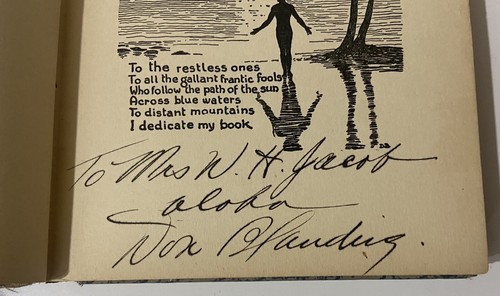 To the restless ones
To all the gallant frantic fools
Who follow the path of the sun
Across blue waters
To distant mountains
I dedicate my book
To Mrs W. H. Jacob
aloha
Don Blanding.